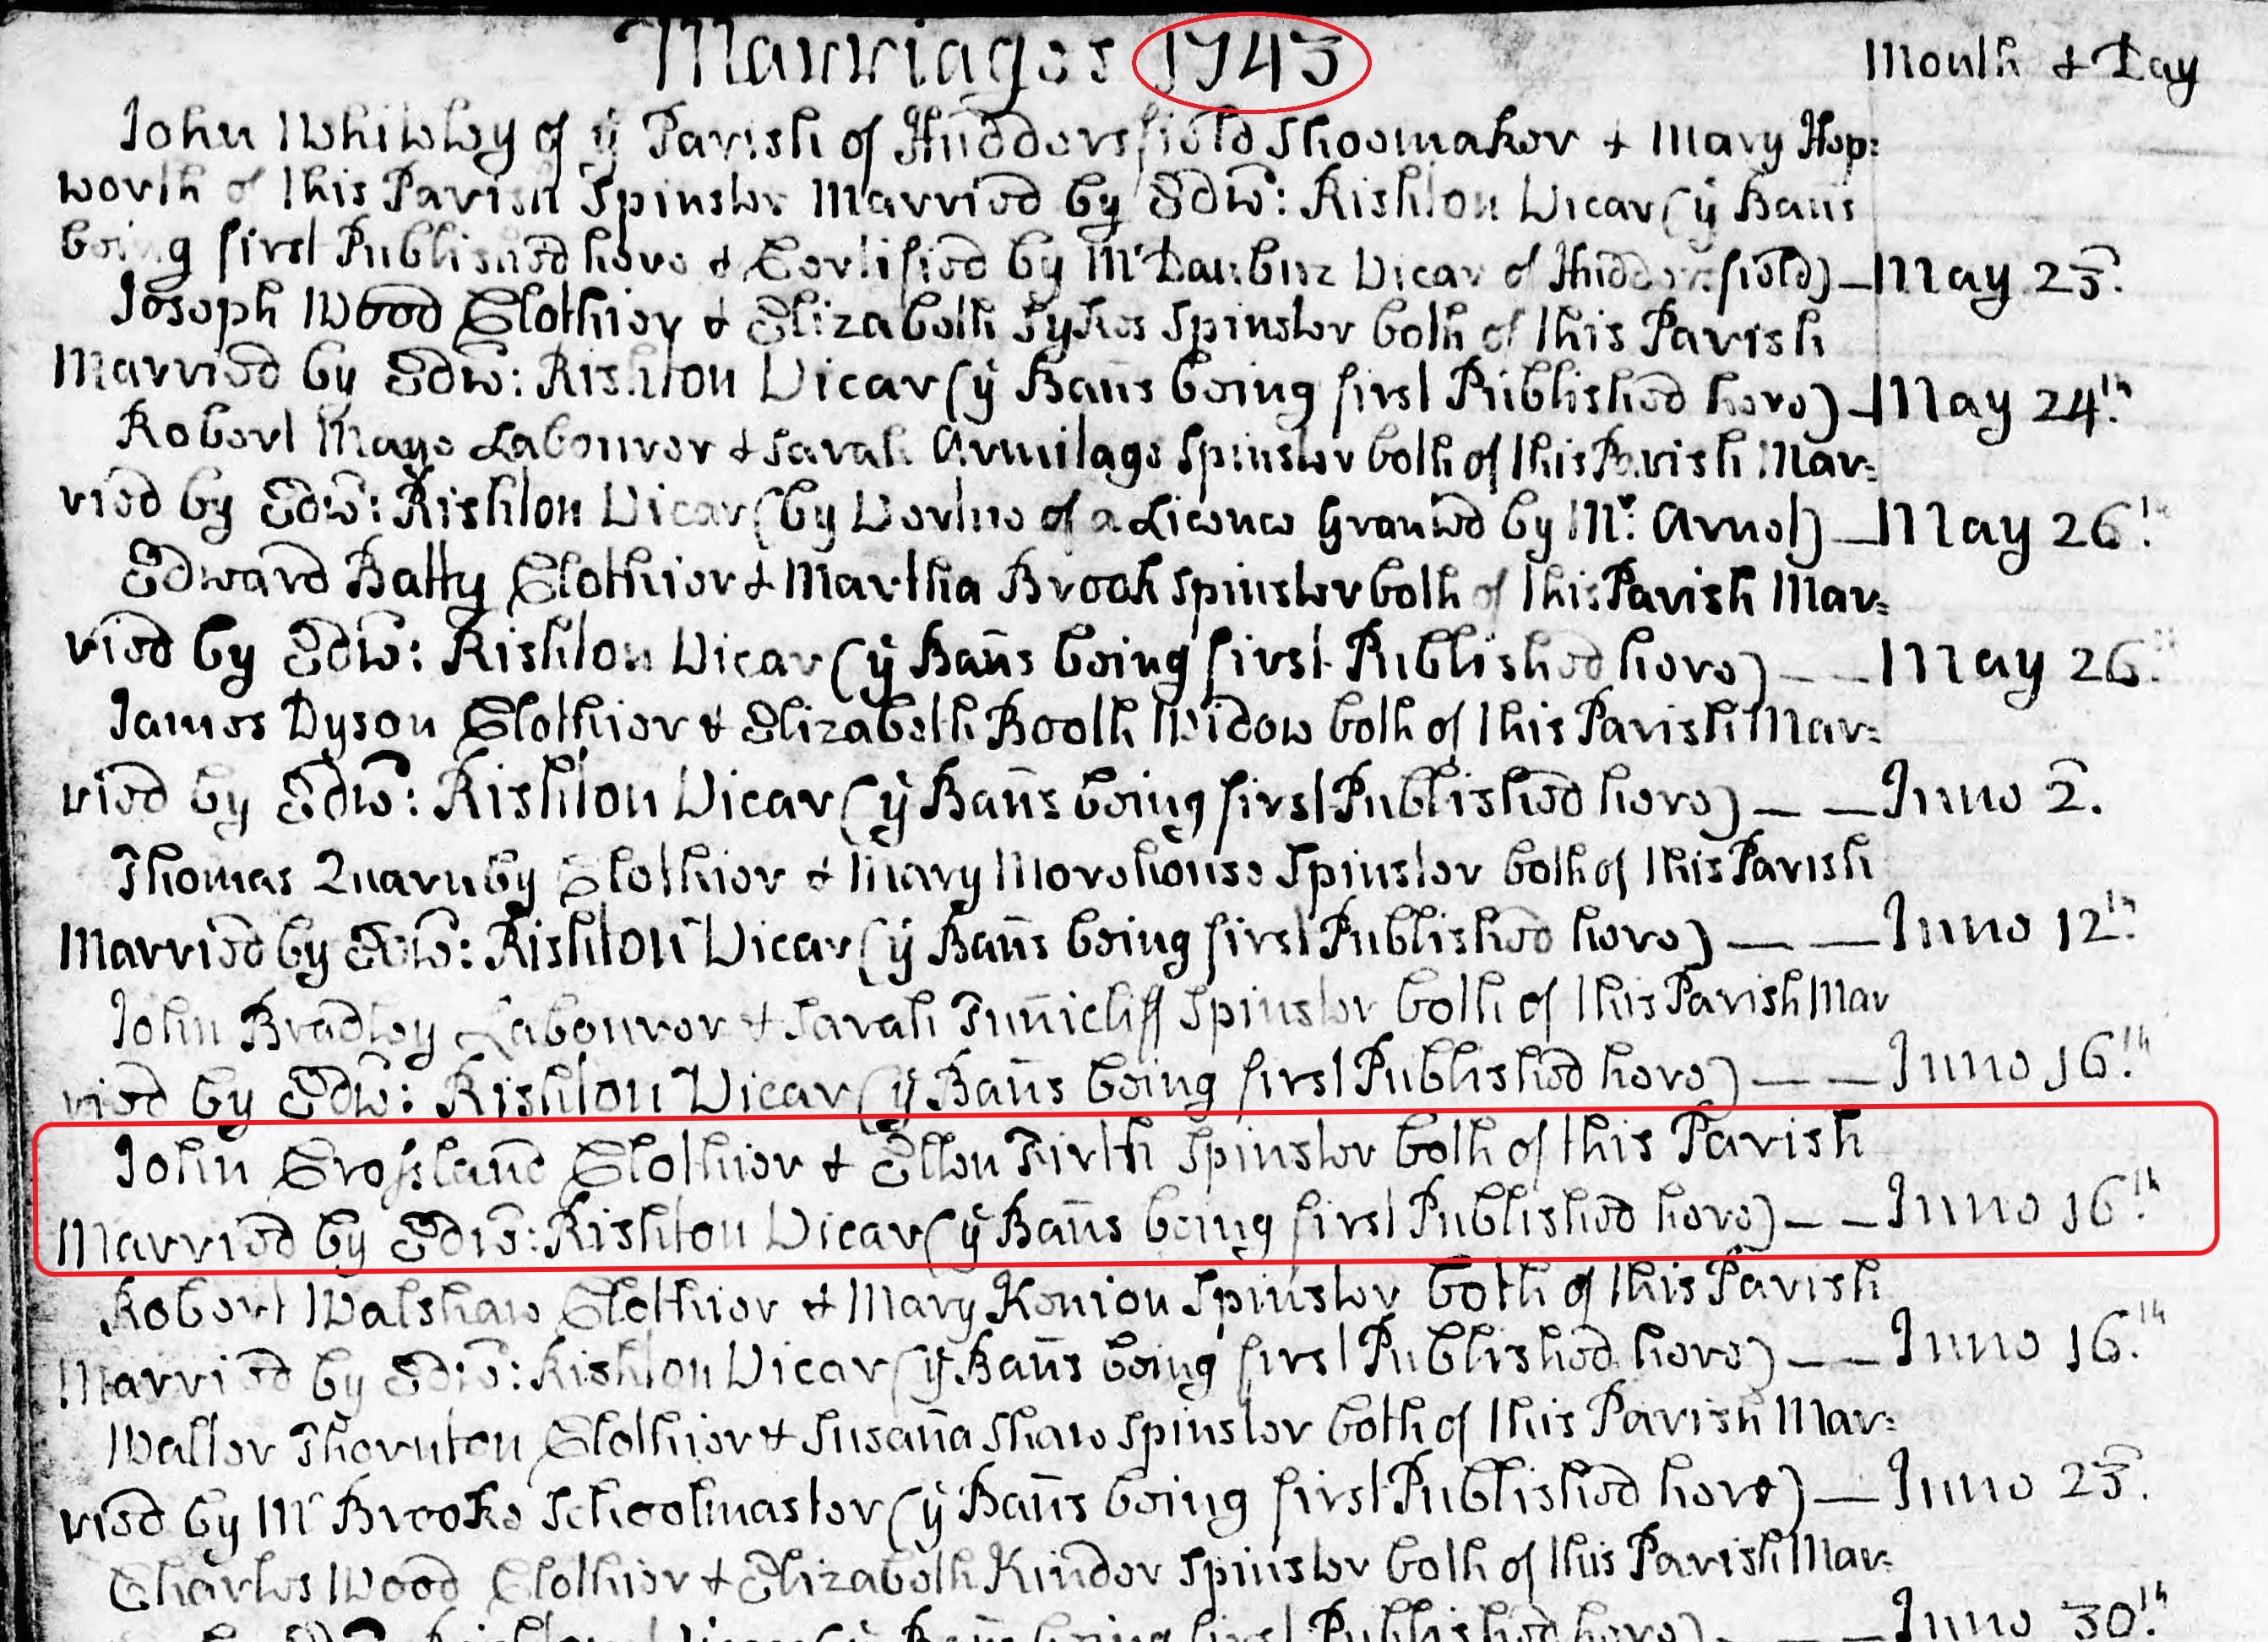 Marriages 1743 Month & Day
John Whitley of ÿ Parish of Huddersfield Shoomaker & Mary Hep:
worth of this Parish Spinster Married by Edw: Rishton Vicar (ÿ Bañs
being first Published here & Certified by Mr Daubuz Vicar of Huddersfield) — May 23.
Joseph Wood Clothier & Elizabeth Sykes Spinster both of this Parish
Married by Edw: Rishton Vicar (ÿ Bañs being first Published here) — May 24th.
Robert Maye Labourer & Sarah Armitage Spinster both of this Parish Mar=
ried by Edw: Rishton Vicar (by Vertue of a Licence Granted by Mr. Arnol) — May 26th.
Edward Batty Clothier & Martha Brook Spinster both of this Parish Mar=
ried by Edw: Rishton Vicar (ÿ Bañs being first Published here) — — May 26th.
James Dyson Clothier & Elizabeth Booth Widow both of this Parish Mar=
ried by Edw: Rishton Vicar (ÿ Bañs being first Published here) — — June 2.
Thomas Quarnby Clothier & Mary Morehouse Spinster both of this Parish
Married by Edw: Rishton Vicar (ÿ Bañs being first Published here) — — June 12th.
John Bradley Labourer & Sarah Tuñicliff Spinster both of this Parish Mar
ried by Edw: Rishton Vicar (ÿ Bañs being first Published here) — — June 16th.
John Crossland Clothier & Ellen Firth Spinster both of this Parish
Married by Edw: Rishton Vicar (ÿ Bañs being first Published here) — — June 16th.
Robert Walshaw Clothier & Mary Kenion Spinster both of this Parish
Married by Edw: Rishton Vicar (ÿ Bañs being first Published here) — — June 16th.
Walter Thornton Clothier & Susaña Shaw Spinster both of this Parish Mar=
ried by Mr Brooke Schoolmaster (ÿ Bañs being first Published here) — June 23.
Charles Wood Clothier & Elizabeth Kinder Spinster both of this Parish Mar=
Rishton Vicar (ÿ Bañs being first Published here) — — June 30th.